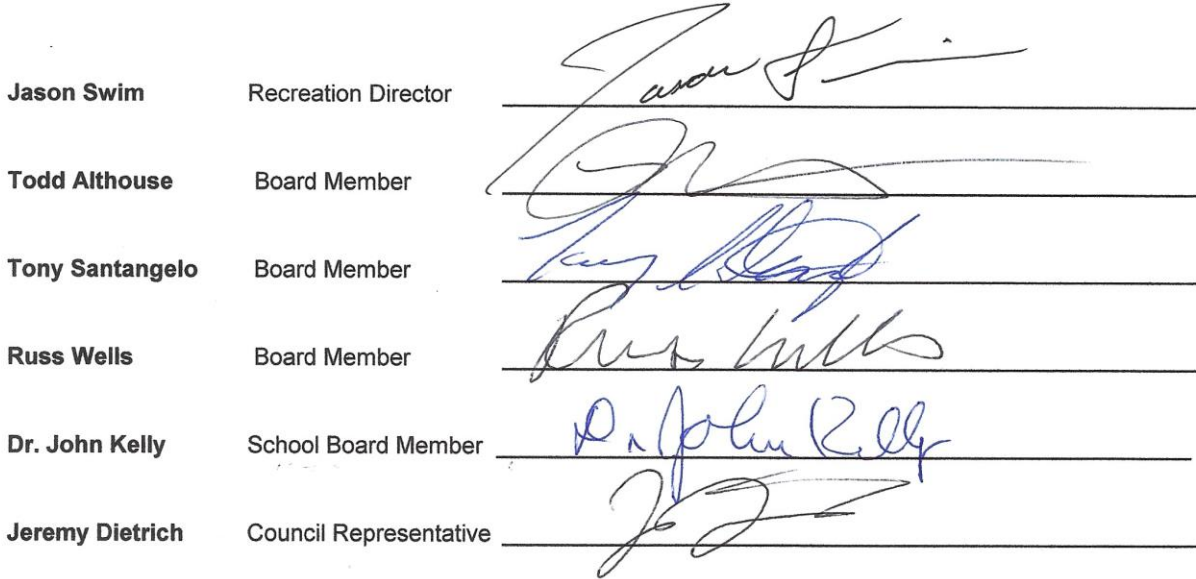 Jason Swim Recreation Director Jason S
Todd Althouse Board Member
Tony Santangelo Board Member Tony
Russ Wells Board Member Russ Wells
Dr. John Kelly School Board Member Dr John Kelly
Jeremy Dietrich Council Representative